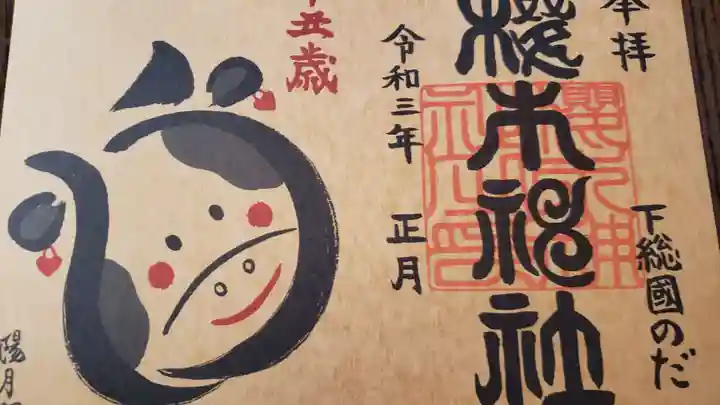 奉拝
下総國のだ
櫻木神社
令和三年 正月
丑歳
陽月